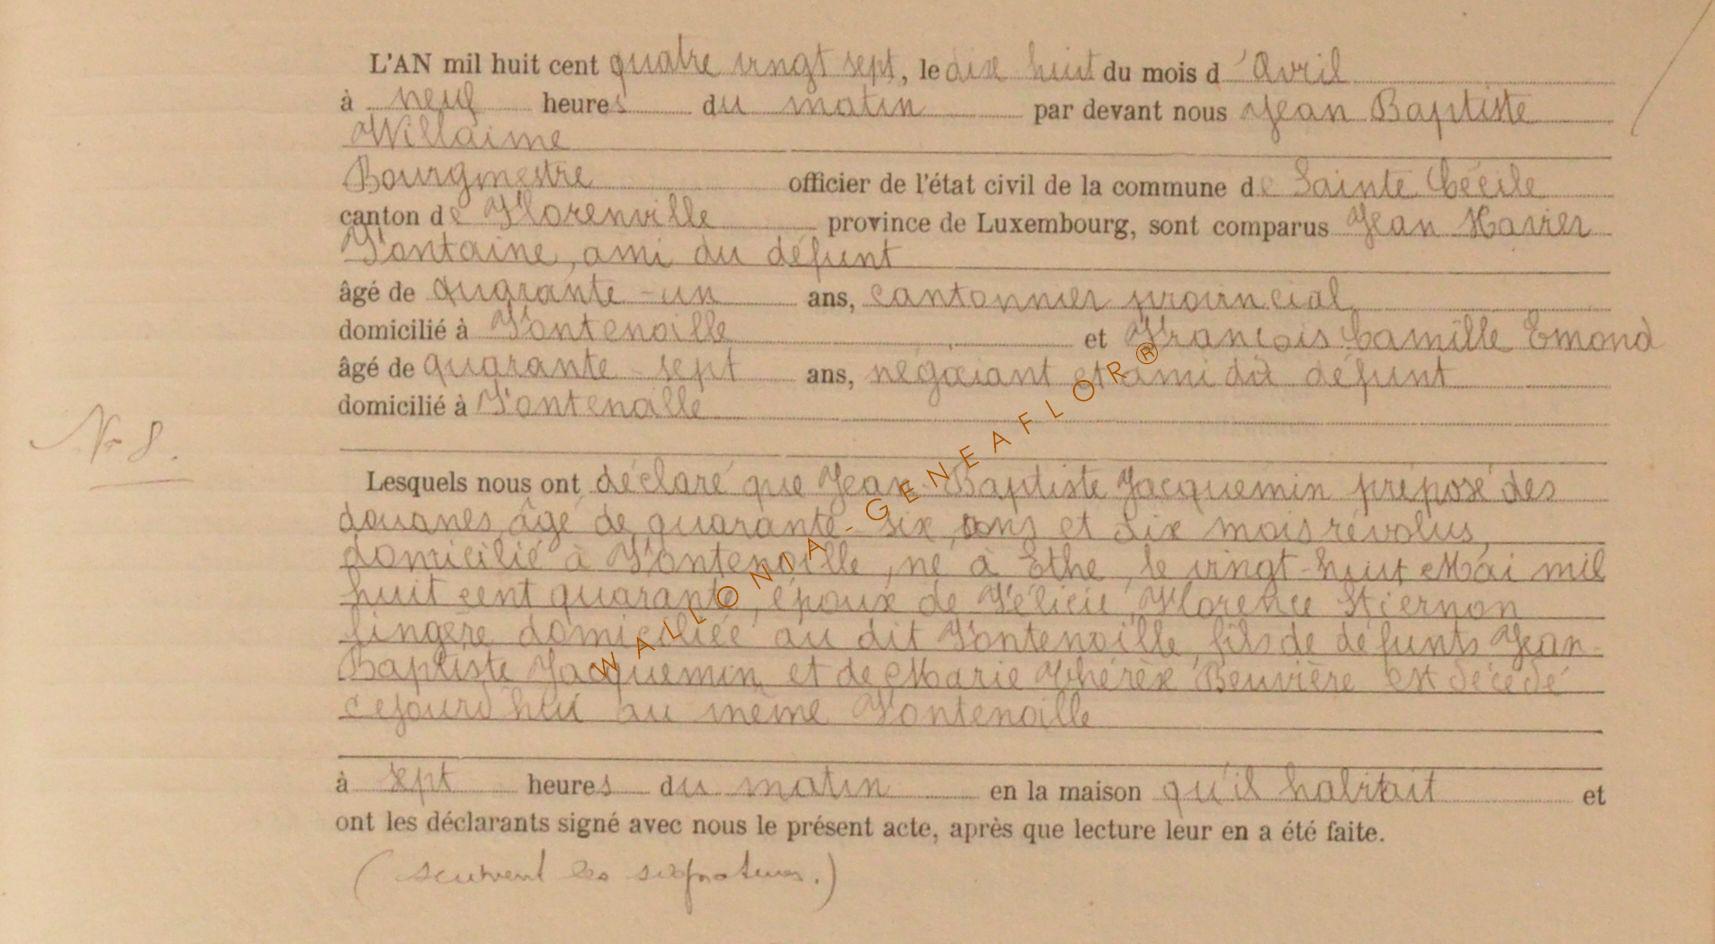 L'AN mil huit cent quatre vingt sept, le dix huit du mois d'Avril
à neuf heures du matin par devant nous Jean Baptiste
Willaime
Bourgmestre officier de l'état civil de la commune de Sainte Cécile
canton de Florenville province de Luxembourg, sont comparus Jean Xavier
Fontaine, ami du défunt
âgé de quarante-un ans, cantonnier provincial
domicilié à Fontenoille et François Camille Emond
âgé de quarante-sept ans, négociant et ami du défunt
domicilié à Fontenoille
No 8.
Lesquels nous ont déclaré que Jean Baptiste Jacquemin préposé des
douanes âgé de quarante-six ans et dix mois révolus,
domicilié à Fontenoille, né à Ethe, le vingt-huit Mai mil
huit cent quarante, époux de Félicie Florence Stiernon
lingère domiciliée au dit Fontenoille, fils de défunts Jean-
Baptiste Jacquemin et de Marie Thérèse Beuvière est décédé
cejourd'hui au même Fontenoille
à sept heures du matin en la maison qu'il habitait et
ont les déclarants signé avec nous le présent acte, après que lecture leur en a été faite.
(suivent les signatures.)
WALLONIA-GENEAFLOR®